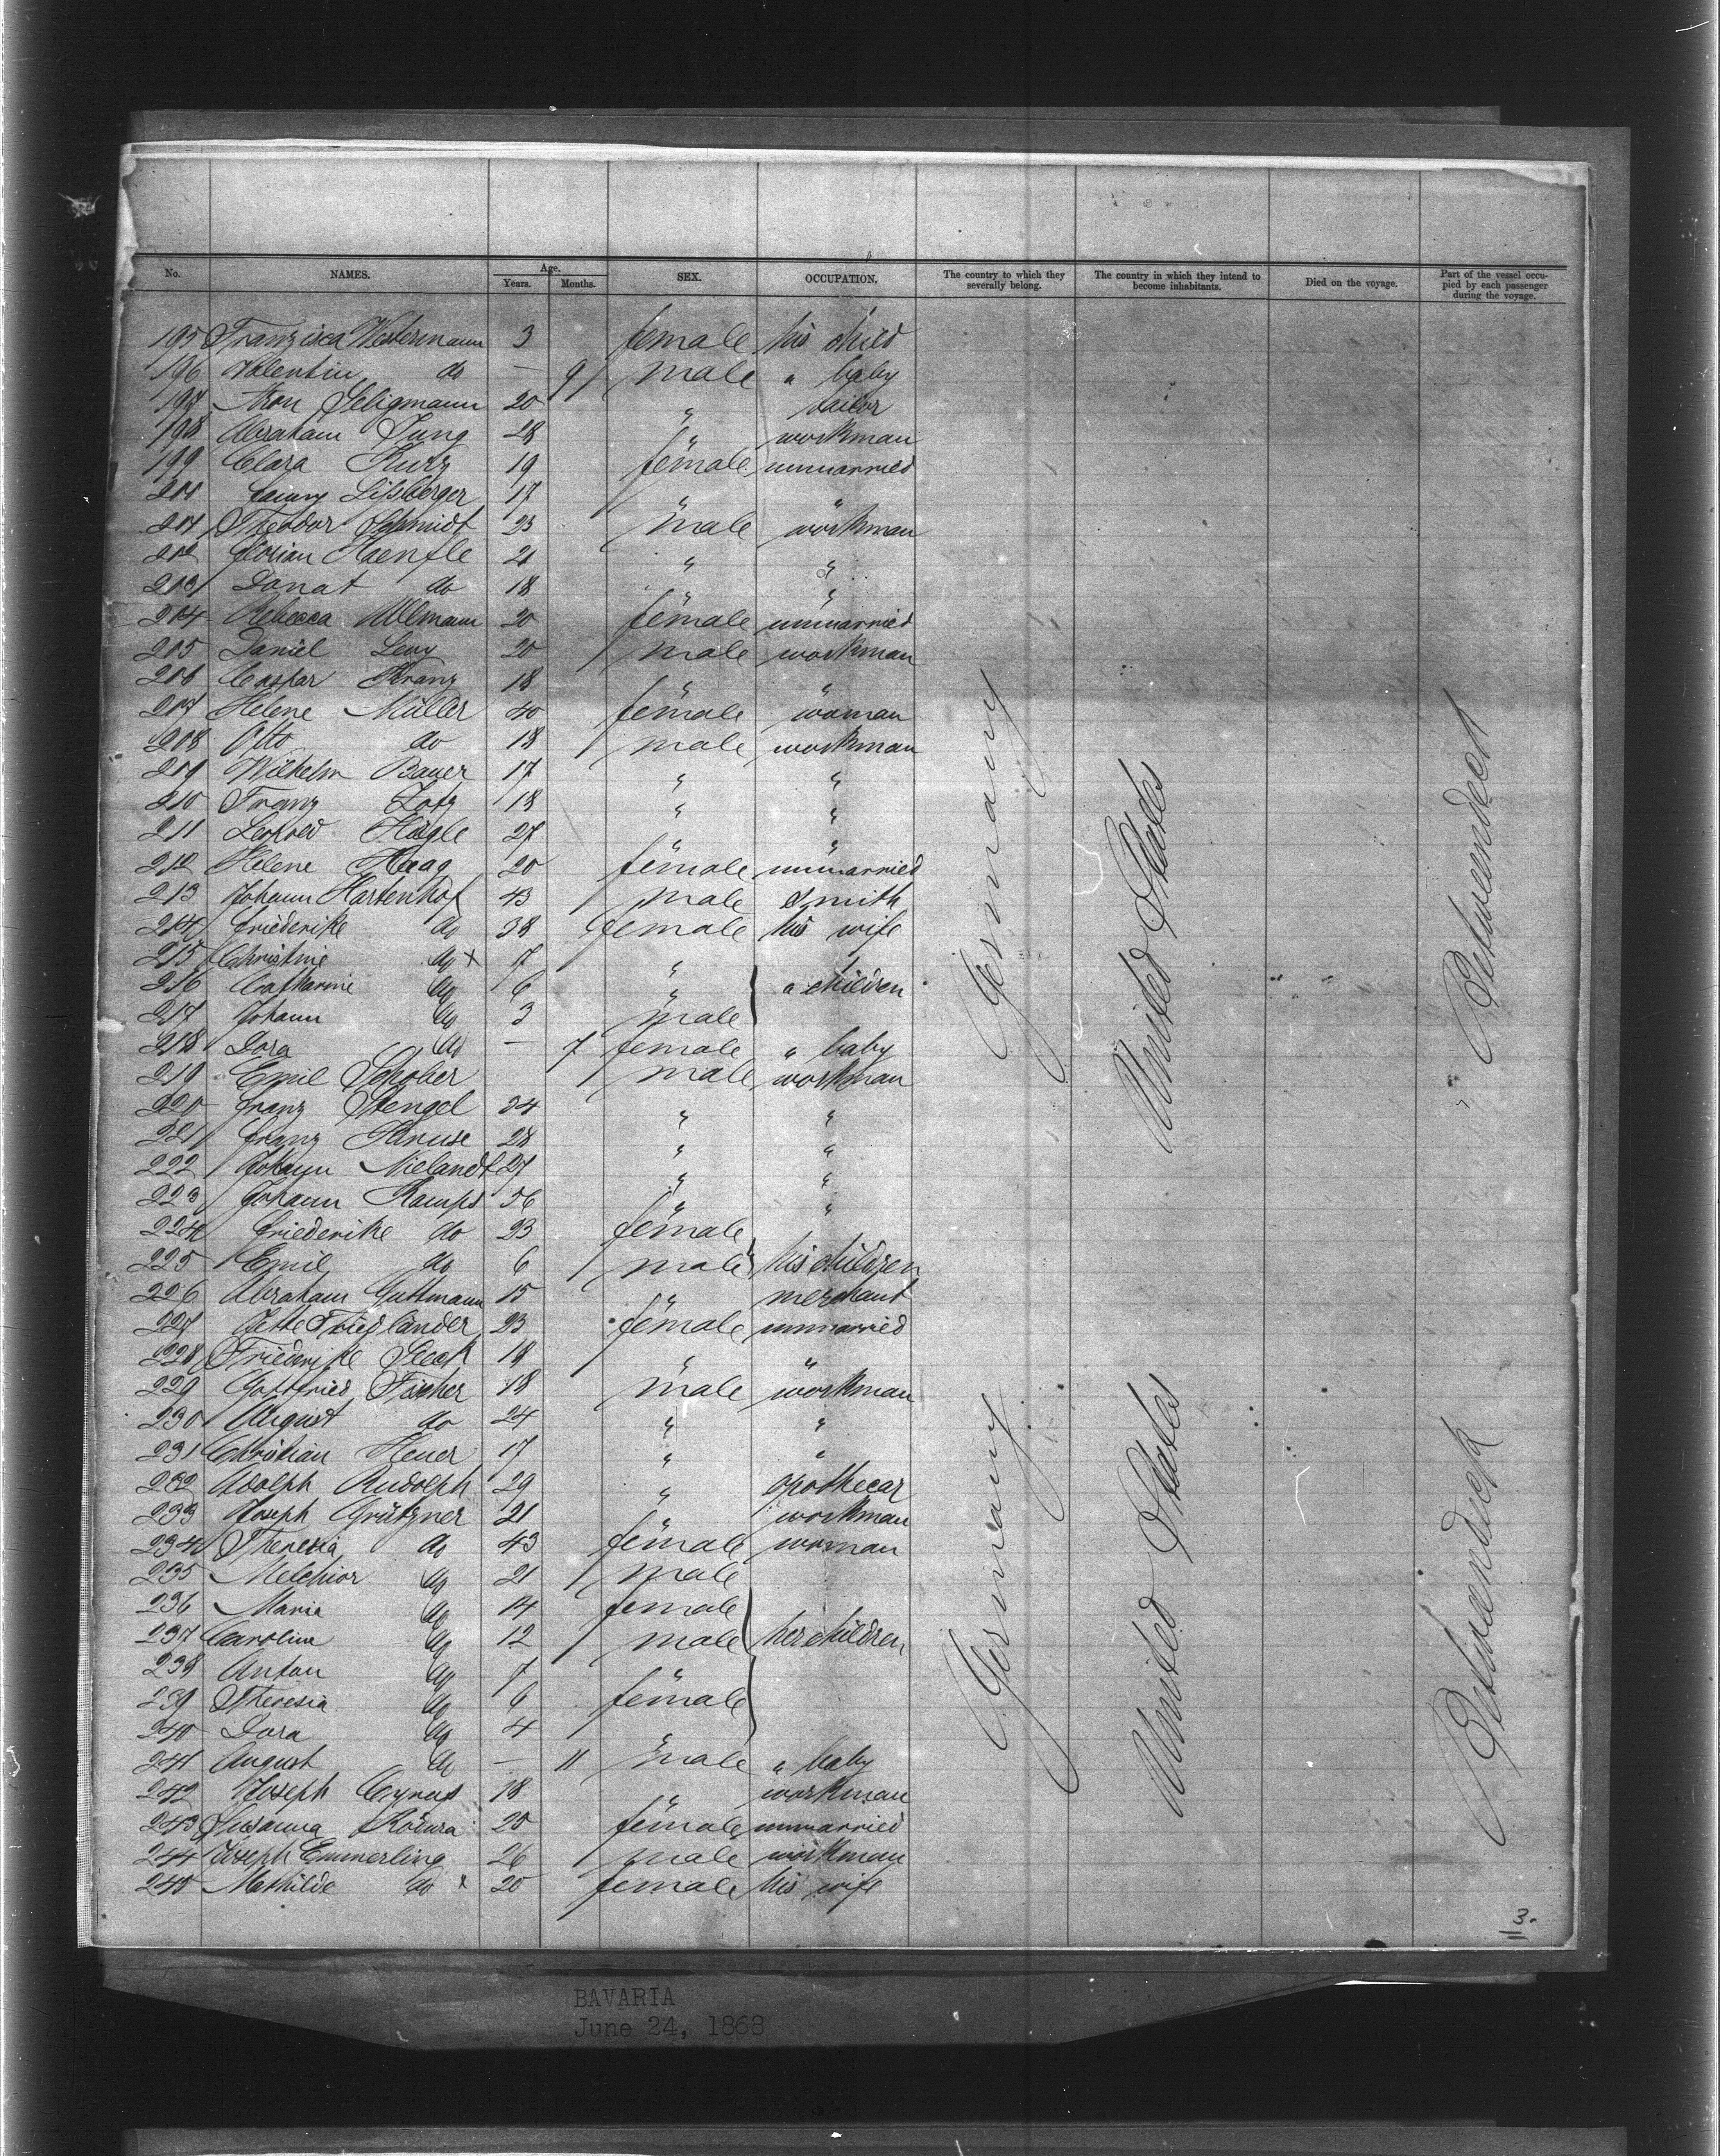 No. NAMES. Age. Years. Months. SEX. OCCUPATION. The country to which they severally belong. The country in which they intend to become inhabitants. Died on the voyage. Part of the vessel occupied by each passenger during the voyage.
195 Franzisca Westermann 3 female his child
196 Valentin do — 9 male " baby
197 Aron Seligmann 20 " tailor
198 Abraham Jung 28 " workman
199 Clara Kurz 19 female unmarried
Fanny Lißberger 17 " "
201 Theodor Schmidt 23 male workman
202 Florian Haenfle 21 " "
203 Donat do 18 " "
204 Rebecca Ullmann 20 female unmarried
205 Daniel Levy 20 male workman
206 Caspar Kranz 18 " "
207 Helene Müller 40 female woman
208 Otto do 18 male workman
209 Wilhelm Bauer 17 " "
210 Franz 18 " "
211 Leopold 27 " "
212 Helene Haag 20 female unmarried
213 Johann Hartenhof 43 male Smith
214 Friederike do 38 female his wife
215 Christine do x 7 "
216 Catharine do 6 " " children
217 Johann do 3 male
218 Dora do — 7 female " baby
219 Emil Schober male workman
220 Franz Stengel 24 " "
221 Franz Kruse 28 " "
222 Johann Nielandt 27 " "
223 Johann Kamps 56 " "
224 Friederike do 23 female
225 Emil do 6 male his children
226 Abraham Guttmann 15 " merchant
227 Jette Friedlander 23 female unmarried
228 Friederike Sieck 18 " "
229 Gottfried Fischer 18 male workman
230 August do 24 " "
231 Christian Heuer 17 " "
232 Adolph Rudolph 29 " apothecar
233 Joseph Grützner 21 " workman
234 Theresia do 43 female woman
235 Melchior do 21 male
236 Maria do 14 female
237 Caroline do 12 male her children
238 Anton do 7 "
239 Theresia do 6 female
240 Dora do 4 "
241 August do — 11 male " baby
242 Joseph 18 " workman
243 Susanna 20 female unmarried
244 Joseph Emmerling 26 male workman
245 Mathilde do x 20 female his wife
Germany
United States
Betweendeck
Germany
United States
Betweendeck
3.
BAVARIA
June 24, 1868